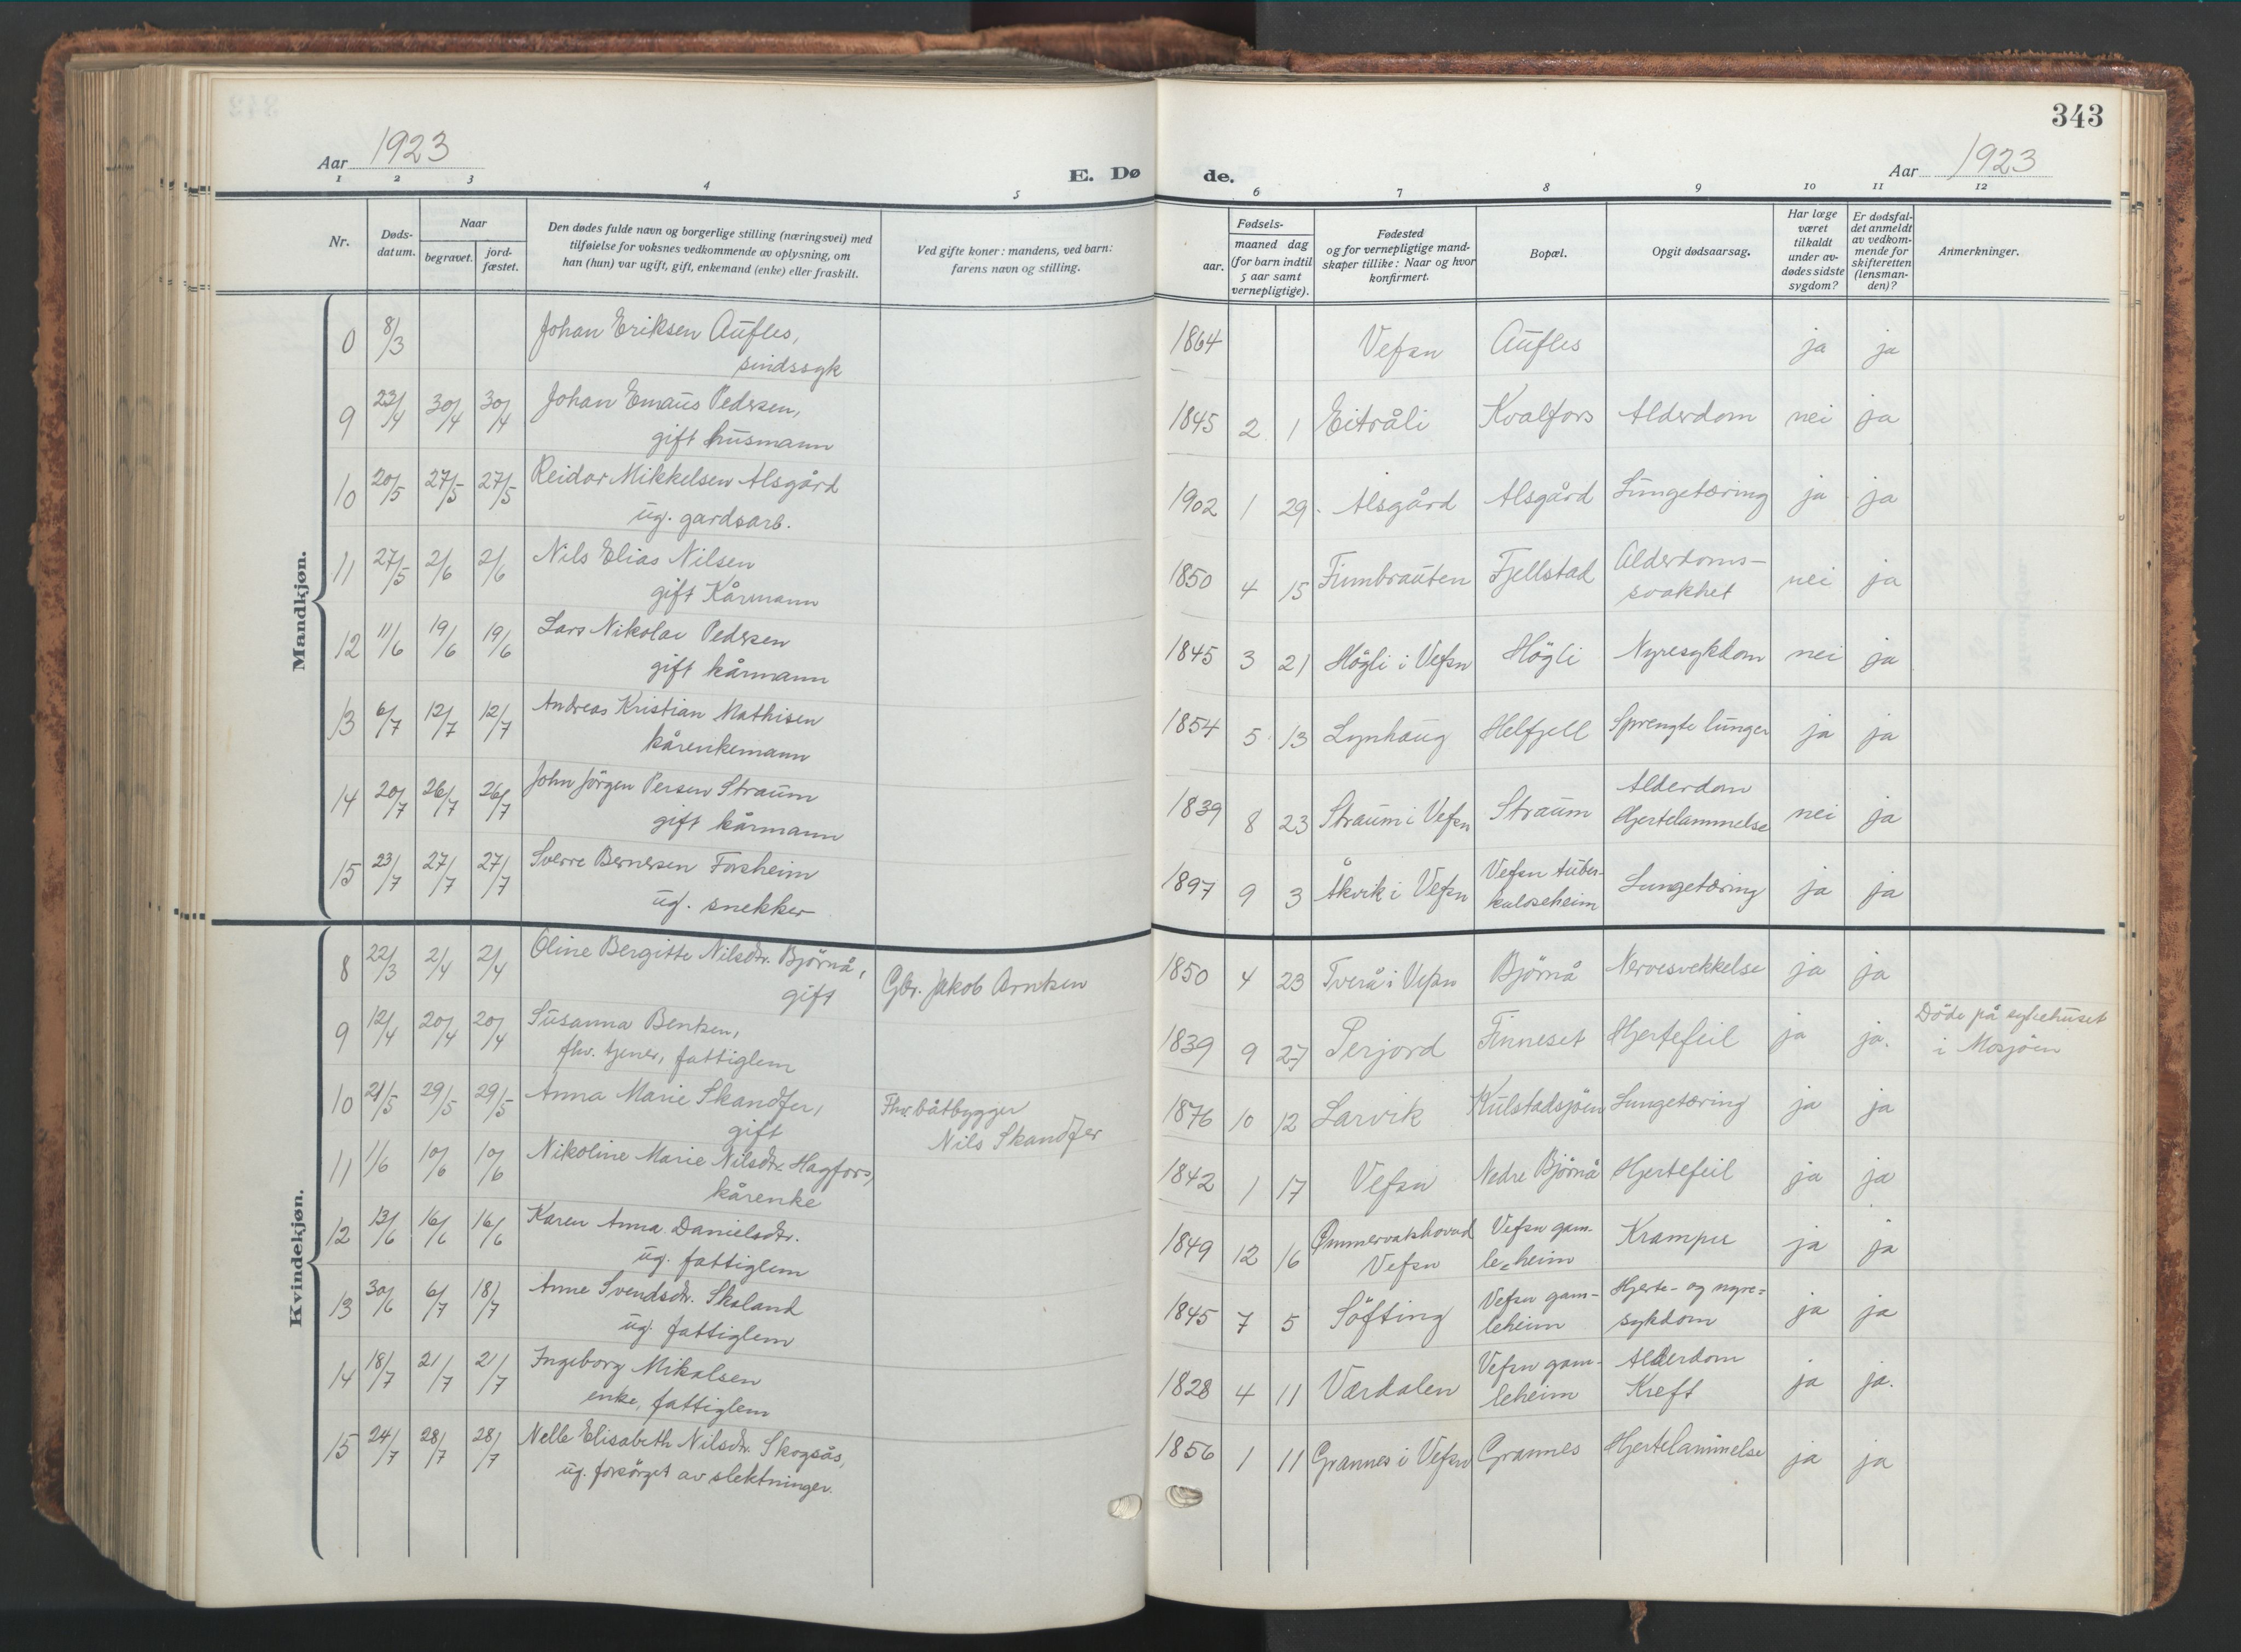 343
Aar 1923
E. Dø
de.
Aar 1923
1 2 3 4 5 6 7 8 9 10 11 12
Nr.
Døds-
datum.
Naar
begravet.
jord-
fæstet.
Den dødes fulde navn og borgerlige stilling (næringsvei) med
tilføielse for voksnes vedkommende av oplysning, om
han (hun) var ugift, gift, enkemand (enke) eller fraskilt.
Ved gifte koner: mandens, ved barn:
farens navn og stilling.
Fødsels-
aar.
maaned dag
(for barn indtil
5 aar samt
vernepligtige).
Fødested
og for vernepligtige mand-
skaper tillike: Naar og hvor
konfirmert.
Bopæl.
Opgit dødsaarsag.
Har læge
været
tilkaldt
under av-
dødes sidste
sygdom?
Er dødsfal-
det anmeldt
av vedkom-
mende for
skifteretten
(lensman-
den)?
Anmerkninger.
Mandkjøn.
0 8/3 Johan Eriksen Aufles, 1864 Vefsn Aufles ja ja
sindssyk
9 23/4 30/4 30/4 Johan Emaus Pedersen, 1845 2 1 Eitråli Kvalfors Alderdom nei ja
gift husmann
10 20/5 27/5 27/5 Reidar Mikkelsen Alsgård 1902 1 29 Alsgård Alsgård Lungetæring ja ja
ug. gardsarb.
11 27/5 2/6 2/6 Nils Elias Nilsen 1850 4 15 Finnbrauten Fjellstad Alderdoms-
svakhet nei ja
gift Kårmann
12 11/6 19/6 19/6 Lars Nikolai Pedersen 1845 3 21 Högli i Vefsn Högli Nyresykdom nei ja
gift kårmann
13 6/7 12/7 12/7 Andreas Kristian Mathisen 1854 5 13 Lynhaug Helfjell Sprengte lunger ja ja
kårenkemann
14 20/7 26/7 26/7 John Jörgen Persen Straum 1839 8 23 Straum i Vefsn Straum Alderdom
Hjertelammelse nei ja
gift kårmann
15 23/7 27/7 27/7 Sverre Bernersen Forsheim 1897 9 3 Åkvik i Vefsn Vefsn tuber-
kuloseheim Lungetæring ja ja
ug. snekker
Kvindekjøn.
8 22/3 2/4 2/4 Oline Bergitte Nilsdtr. Björnå, Gbr. Jakob Arntsen 1850 4 23 Tverå i Vefsn Björnå Nervesvekkelse ja ja
gift
9 12/4 20/4 20/4 Susanna Bentsen, 1839 9 27 Perjord Finneset Hjertefeil ja ja. Döde på sykehuset
i Mosjöen
fhv. tjener, fattiglem
10 21/5 29/5 29/5 Anna Marie Skandfer, Fhv. båtbygger
Nils Skandfer 1876 10 12 Larvik Kulstadsjöen Lungetæring ja ja
gift
11 1/6 10/6 10/6 Nikoline Marie Nilsdtr. Hagfors, 1842 1 17 Vefsn Nedre Björnå Hjertefeil ja ja
kårenke
12 13/6 16/6 16/6 Karen Anna Danielsdtr. 1849 12 16 Ømmervatshovud
Vefsn Vefsn gam-
leheim Kramper ja ja
ug. fattiglem
13 30/6 6/7 18/7 Anne Svendsdtr. Skaland 1845 7 5 Söfting Vefsn gam-
leheim Hjerte- og nyre-
sykdom ja ja
ug. fattiglem
14 18/7 21/7 21/7 Ingeborg Mikalsen 1828 4 11 Værdalen Vefsn gam-
leheim Alderdom
Kreft ja ja.
enke, fattiglem
15 24/7 28/7 28/7 Nelle Elisabeth Nilsdtr. Skogsås, 1856 1 11 Grannes i Vefsn Grannes Hjertelammelse ja ja
ug. forsörget av slektninger.